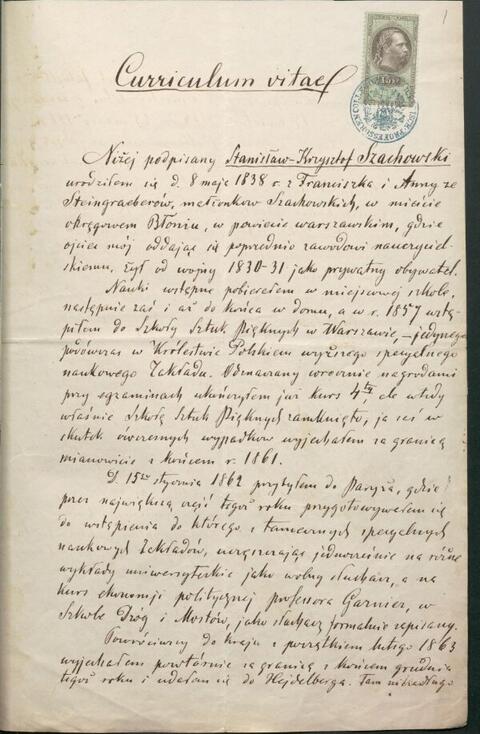 1
Curriculum vitae
Niżej podpisany Stanisław-Krzysztof Szachowski
urodziłem się d. 8 maja 1838 r. z Franciszka i Anny ze
Steingraeberów, małżonków Szachowskich, w mieście
okręgowem Błoniu, w powiecie warszawskim, gdzie
ojciec mój oddając się poprzednio zawodowi nauczyciel-
skiemu, żył od wojny 1830-31 jako prywatny obywatel.
Nauki wstępne pobierałem w miejscowej szkole,
następnie zaś i aż do końca w domu, a w r. 1857 wstą-
piłem do Szkoły Sztuk Pięknych w Warszawie, – jedynego
podówczas w Królestwie Polskiem wyższego specyalnego
naukowego Zakładu. Odznaczany corocznie nagrodami
przy egzaminach ukończyłem już kurs 4ty ale wtedy
właśnie Szkołę Sztuk Pięknych zamknięto, ja zaś w
skutek ówczesnych wypadków wyjechałem za granicę
mianowicie z końcem r. 1861.
D. 15go stycznia 1862 przybyłem do Paryża, gdzie
przez największą część tegoż roku przygotowywałem się
do wstąpienia do którego z tamecznych specyalnych
naukowych Zakładów, uczęszczając jednocześnie na różne
wykłady uniwersyteckie jako wolny słuchacz, a na
kurs ekonomji politycznej professora Garnier, w
Szkole Dróg i Mostów, jako słuchacz formalnie zapisany.
Powróciwszy do kraju z początkiem lutego 1863
wyjechałem powtórnie za granicę z końcem grudnia
tegoż roku i udałem się do Hejdelberga. Tam niezadługo